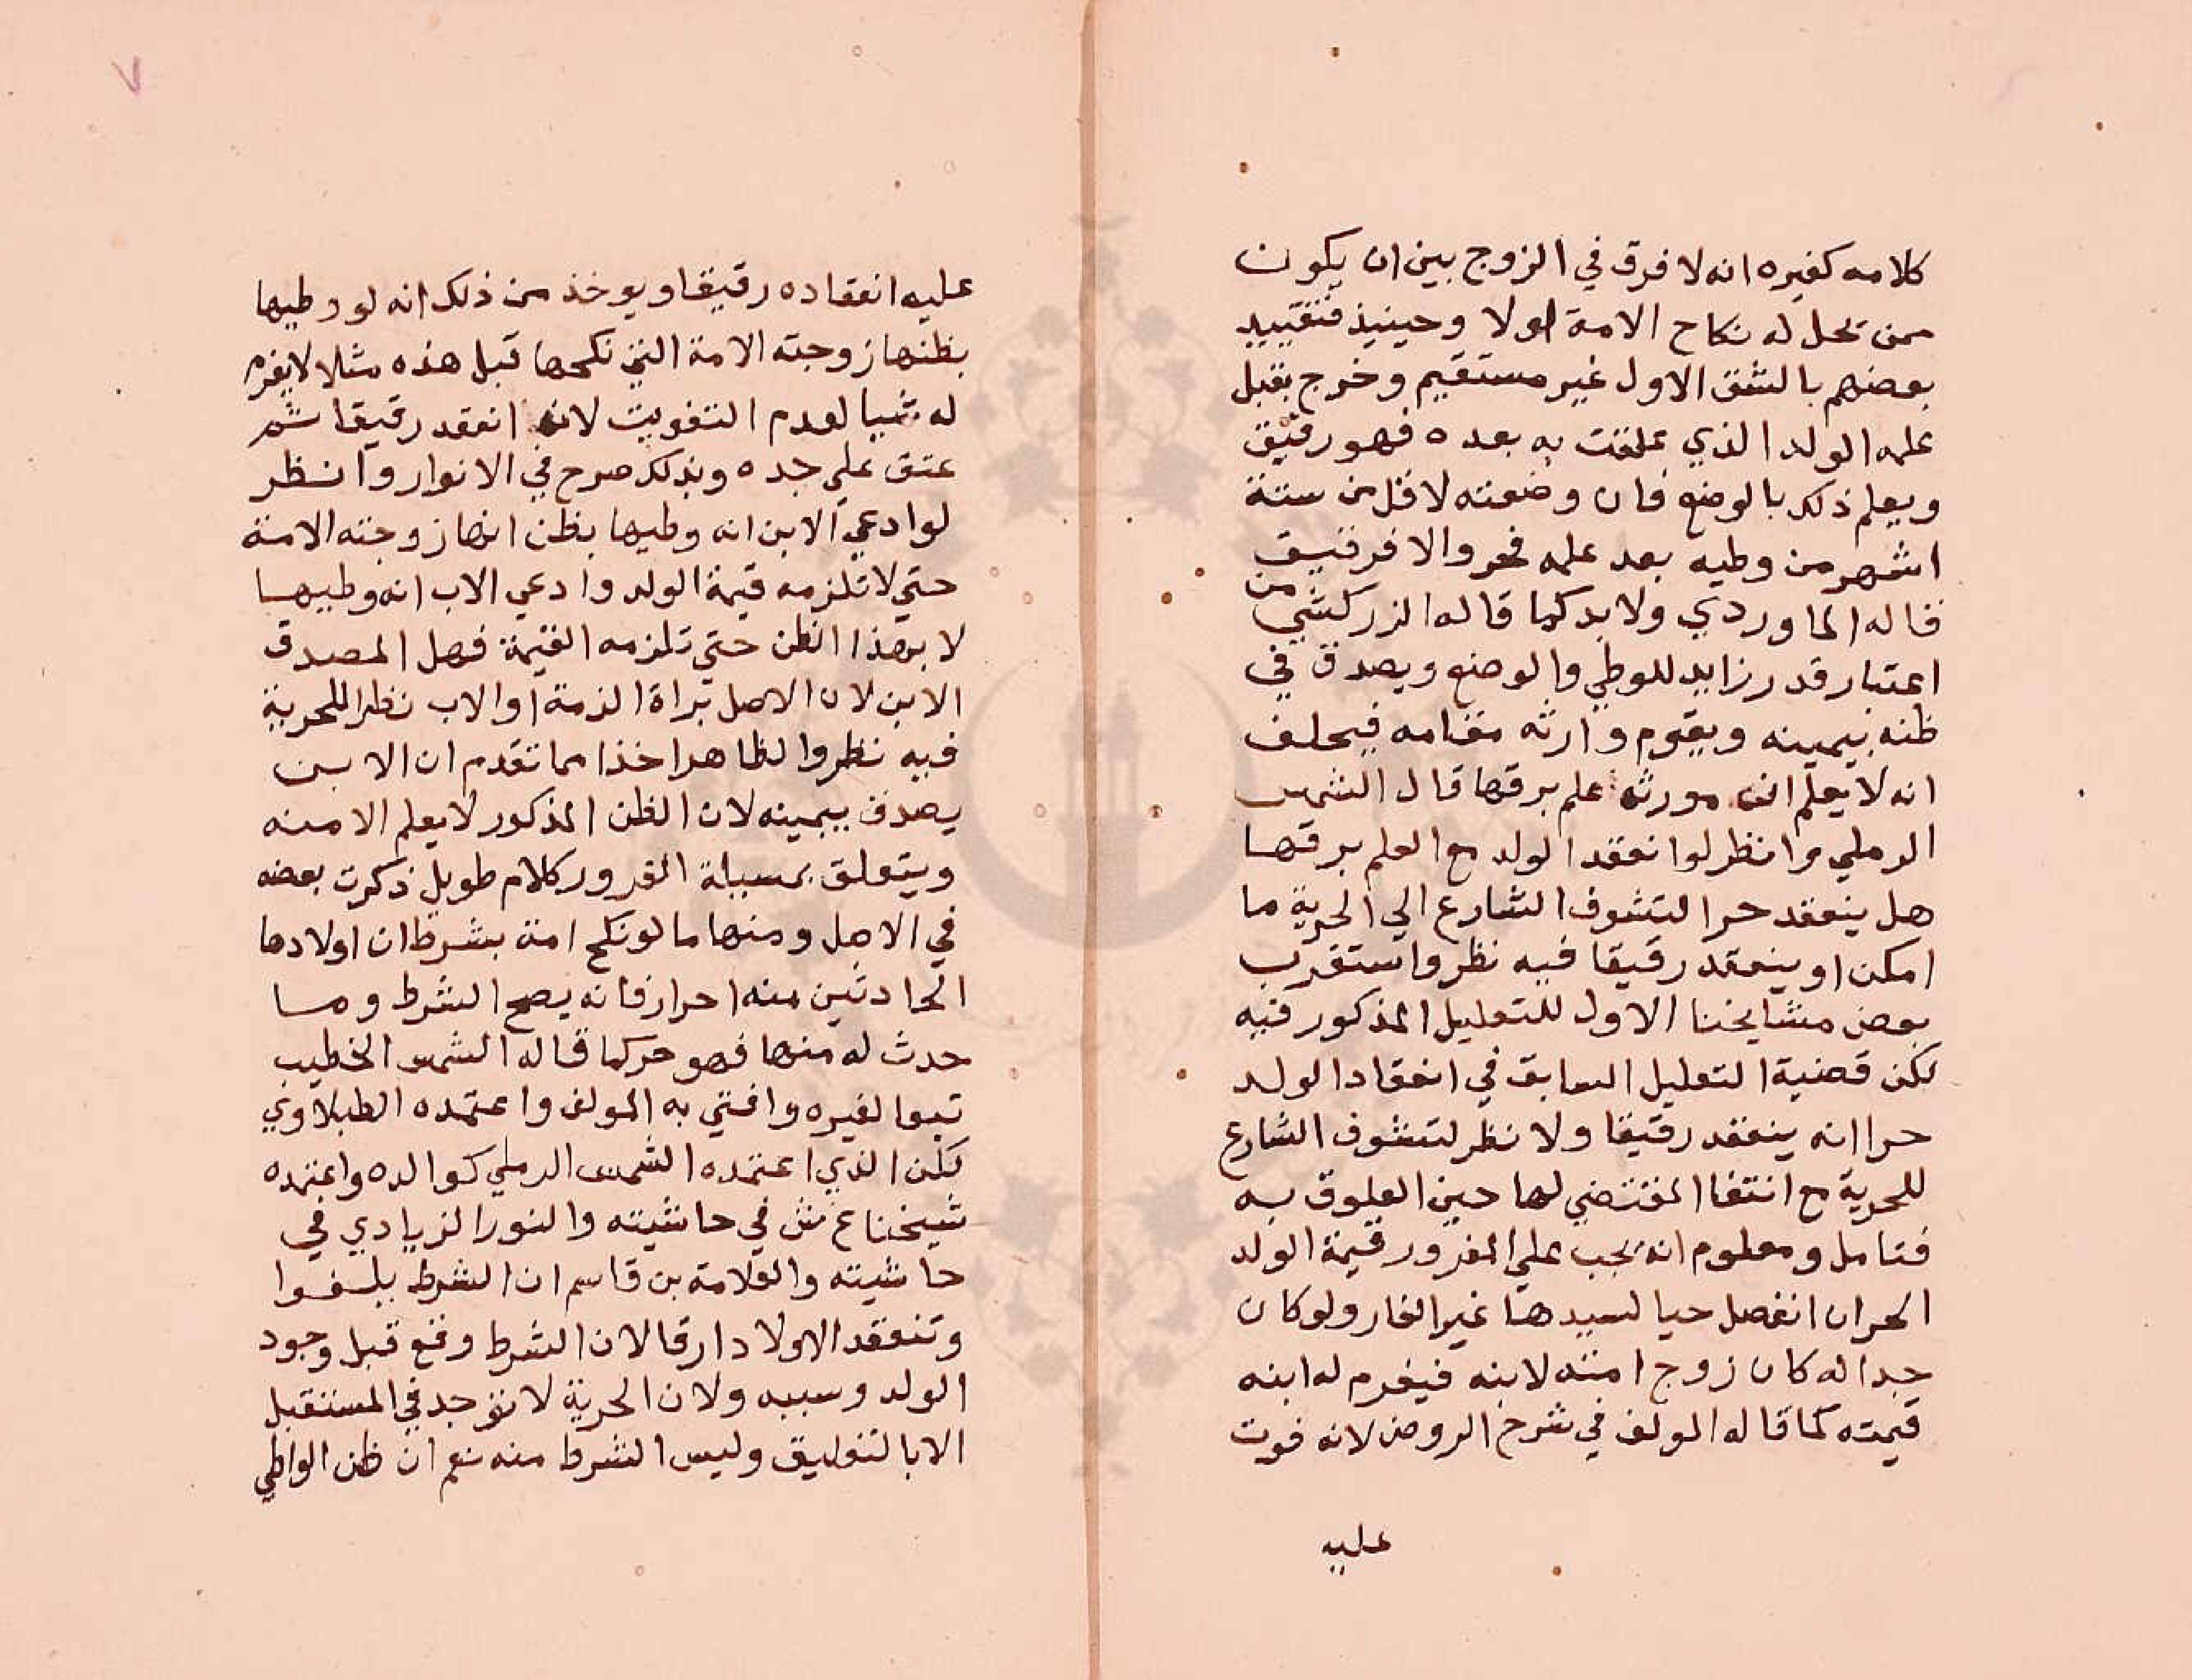 كلامه كغيره انه لا فرق في الزوج بين ان يكون
ممن تحل له نكاح الامة اولا وحينيذ فتقييد
بعضهم بالشق الاول غير مستقيم وخرج بقبل
علمه الولد الذي علقت به بعده فهو رقيق
ويعلم ذلك بالوضع فان وضعته لاقل من ستة
اشهر من وطيه بعد علمه فحر والا فرقيق
قاله الماوردي ولا بد كما قاله الزركشي من
اعتبار قدر زايد للوطي والوضع ويصدق في
ظنه بيمينه ويقوم وارثه مقامه فيحلف
انه لا يعلم ان مورثه علم برقها قال الشمس
الرملي وانظر لو انعقد الولد مع العلم برقها
هل ينعقد حرا لتشوف الشارع الي الحرية ما
امكن او ينعقد رقيقا فيه نظر واستقرب
بعض مشايخنا الاول للتعليل المذكور فيه
لكن قضية التعليل السابق في انعقاد الولد
حرا انه ينعقد رقيقا ولا نظر لتشوف الشارع
للحرية مع انتفا المقتضي لها حين العلوق به
فتامل ومعلوم انه يجب علي المغرور قيمة الولد
الحر ان انفصل حيا لسيدها غير الغار ولو كان
جدا له كان زوج امته لابنه فيغرم له ابنه
قيمته كما قاله المولف في شرح الروض لانه فوت
عليه
٧
عليه انعقاده رقيقا ويوخذ من ذلك انه لو وطيها
بظنها زوجته الامة التي نكحها قبل هذه مثلا لا يغرم
له شيا لعدم التفويت لانه انعقد رقيقا ثم
عتق علي جده وبذلك صرح في الانوار وانظر
لو ادعي الابن انه وطيها بظن انها زوجته الامة
حتي لا تلزمه قيمة الولد وادعي الاب انه وطيها
لا بهذا الظن حتي تلزمه القيمة فهل المصدق
الابن لان الاصل براة الذمة او الاب نظرا للحرية
فيه نظر والظاهر اخذا مما تقدم ان الابن
يصدق بيمينه لان الظن المذكور لا يعلم الا منه
ويتعلق بمسيلة الغرور كلام طويل ذكرت بعضه
في الاصل ومنها ما لو نكح امة بشرط ان اولادها
الحادثين منه احرار فانه يصح الشرط وما
حدث له منها فهو حر كما قاله الشمس الخطيب
تبعا لغيره وافتي به المولف واعتمده الطبلاوي
لكن الذي اعتمده الشمس الرملي كوالده واعتمده
شيخنا ع ش في حاشيته والنور الزيادي في
حاشيته والعلامة بن قاسم ان الشرط يلغوا
وتنعقد الاولاد ارقا لان الشرط وقع قبل وجود
الولد وسببه ولان الحرية لا توجد في المستقبل
الا بالتعليق وليس الشرط منه نعم ان ظن الواطي